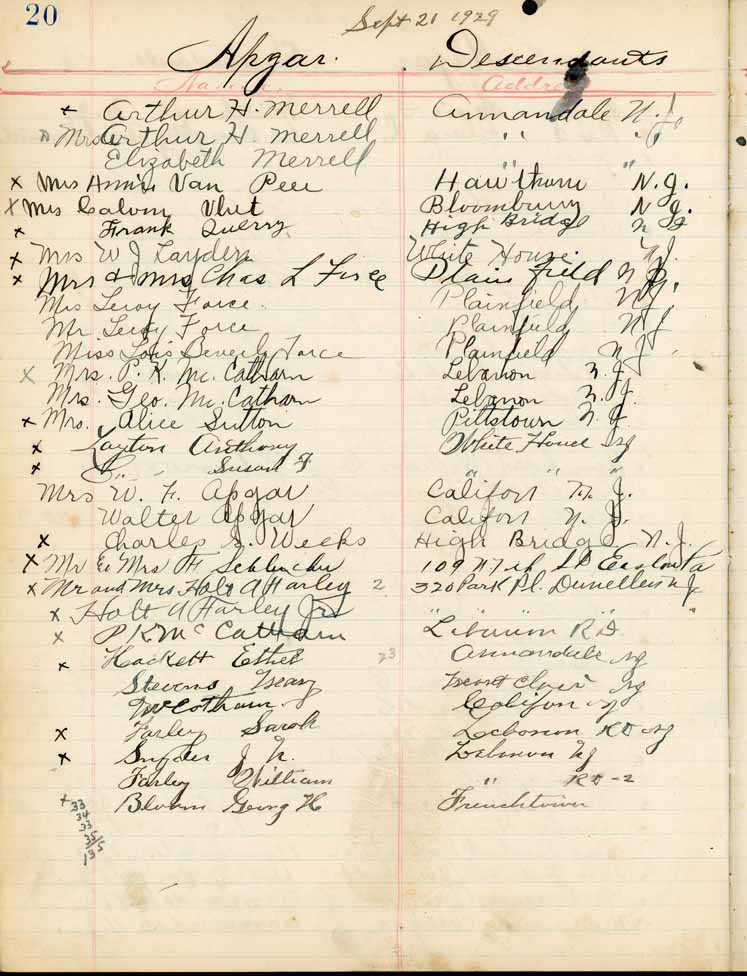 20
Sept 21 1929
Apgar. Descendants
Name. Address
x Arthur H. Merrell Annandale N.J.
Mrs Arthur H. Merrell " "
Elizabeth Merrell " "
x Mrs Van Hawthorn N.J.
x Mrs Calvin Vliet Bloomsbury N.J.
x Frank Querry High Bridge N J
x Mrs W J Layden White House. N.J.
x Mrs & Mrs Chas L Force Plainfield N.J.
Mrs Leroy Force. Plainfield N.J.
Mr Leroy Force Plainfield N J
Miss Lois Beverly Force Plainfield N J
x Mrs. P. K. Mc. Catharn Lebanon N.J.
Mrs. Geo. Mc. Catharn Lebanon N.J.
x Mrs. Alice Sutton Pittstown N.J.
x Layton Anthony White House NJ
x " Susan F " " "
Mrs W. F. Apgar Califon N. J.
Walter Apgar Califon N. J.
x Charles S. Weeks High Bridge N.J.
x Mr & Mrs H 109 N 7th St Easton Pa
x Mr and Mrs Holt A Farley 2 320 Park Pl. Dunellen N J
x Holt A Farley Jr " " "
x P K Mc Catharn Lebanon R D.
x Hackett Ethel 23 Annandale NJ
Stevens NJ
McCotharn Califon NJ
x Farley Sarah Lebanon RD NJ
x Snyder J N. Lebanon NJ
Farley William " RD-2
x Bloom Georg H Frenchtown
33
34
33
35
135